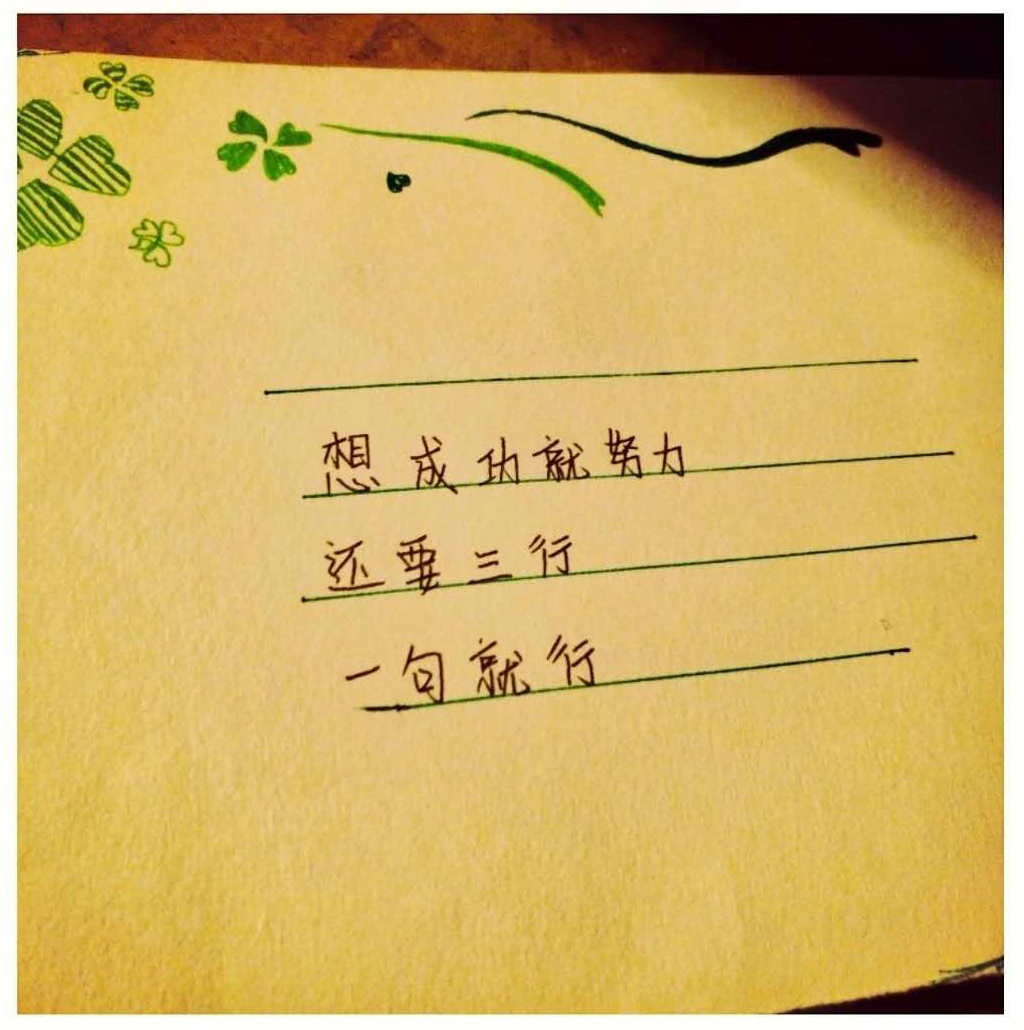 想成功就努力
还要三行
一句就行